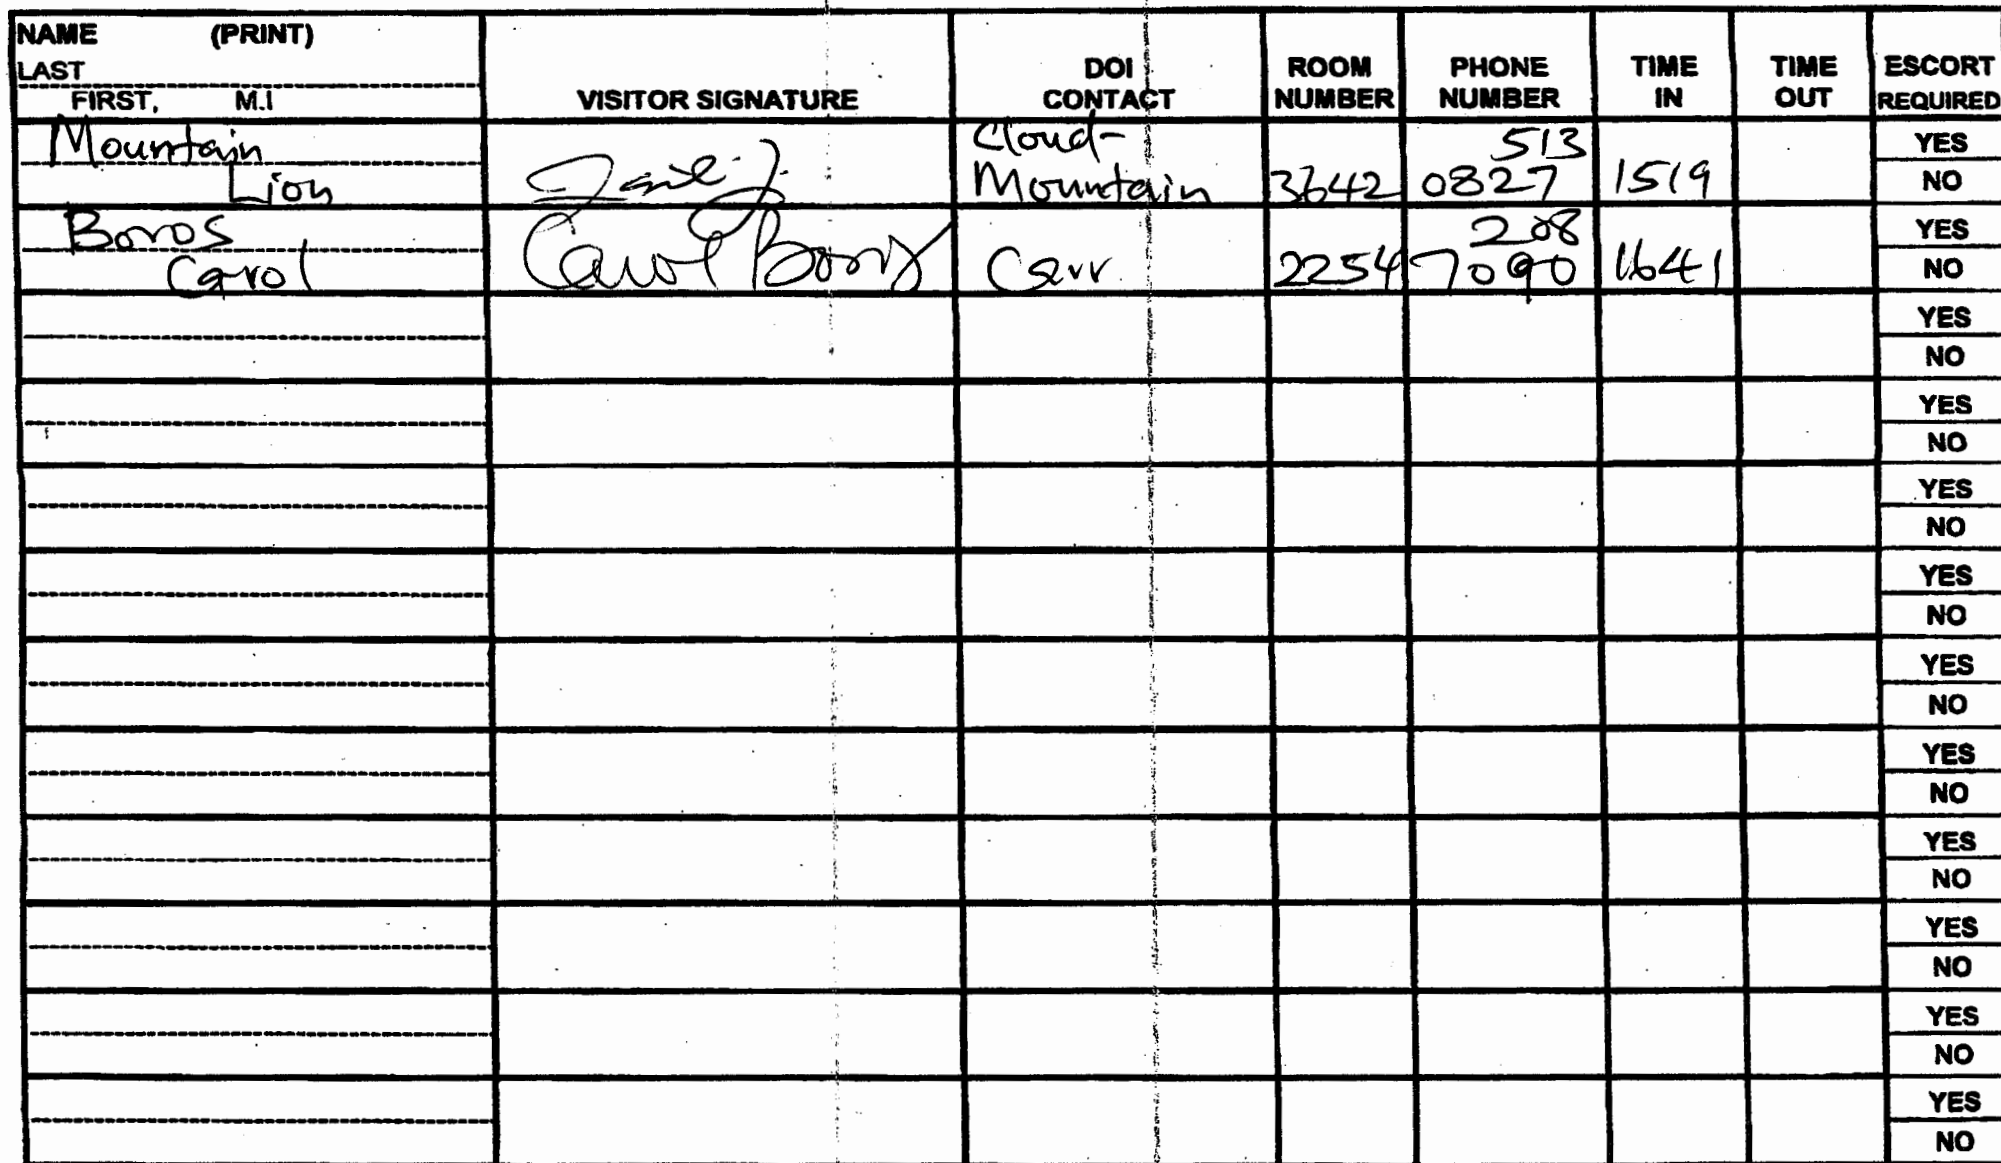 NAME (PRINT)
LAST
FIRST, M.I
VISITOR SIGNATURE
DOI
CONTACT
ROOM
NUMBER
PHONE
NUMBER
TIME
IN
TIME
OUT
ESCORT
REQUIRED
Mountain
Lion
Cloud-
Mountain
3642
513
0827
1519
YES
NO
Boros
Carol
Carol Boros
Carr
2254
208
7090
1641
YES
NO
YES
NO
YES
NO
YES
NO
YES
NO
YES
NO
YES
NO
YES
NO
YES
NO
YES
NO
YES
NO